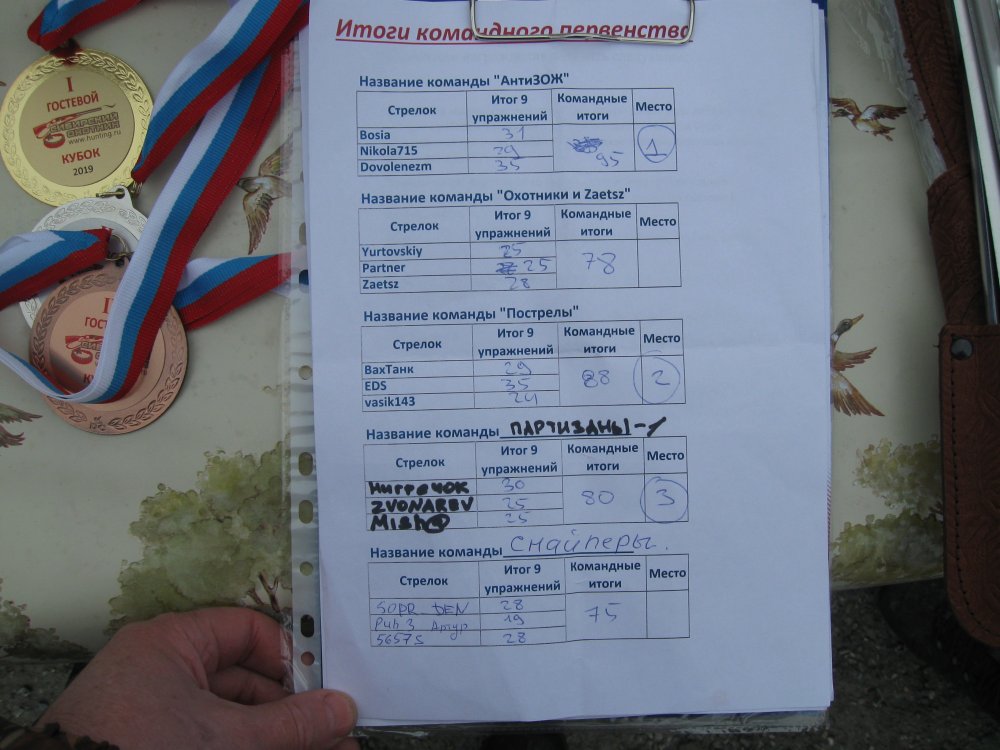 Итоги командного первенства
Название команды "АнтиЗОЖ"
Стрелок Итог 9 упражнений Командные итоги Место
Bosia 31
Nikola715 29
Dovolenezm 35
95 1
Название команды "Охотники и Zaetsz"
Стрелок Итог 9 упражнений Командные итоги Место
Yurtovskiy 25
Partner 25
Zaetsz 28
78
Название команды "Пострелы"
Стрелок Итог 9 упражнений Командные итоги Место
ВахТанк 29
EDS 35
vasik143 24
88 2
Название команды ПАРТИЗАНЫ-1
Стрелок Итог 9 упражнений Командные итоги Место
30
ZVONAREV 25
Mish@ 25
80 3
Название команды Снайперы.
Стрелок Итог 9 упражнений Командные итоги Место
SOPR_DEN 28
Артур 19
56575 28
75
I
ГОСТЕВОЙ
СИБИРСКИЙ
ОХОТНИК
www.hunting.ru
КУБОК
2019
I
ГОСТ